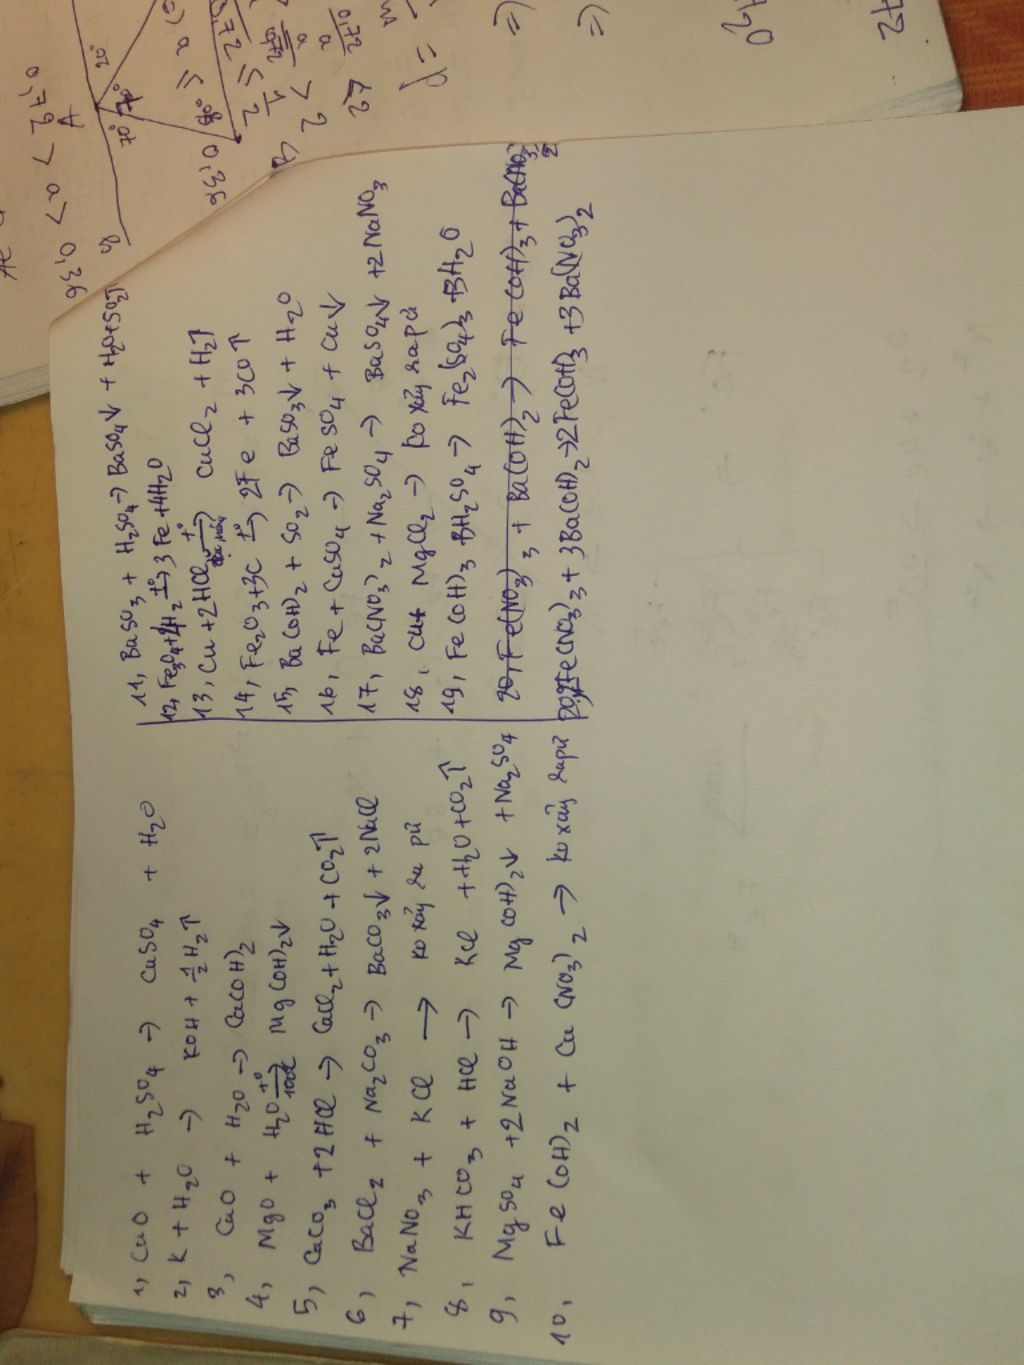 1, CuO + H2SO4 → CuSO4 + H2O
2, K + H2O → KOH + 1/2 H2↑
3, CaO + H2O → Ca(OH)2
4, MgO + H2O t° → 100°C Mg(OH)2↓
5, CaCO3 + 2HCl → CaCl2 + H2O + CO2↑
6, BaCl2 + Na2CO3 → BaCO3↓ + 2NaCl
7, NaNO3 + KCl → ko xảy ra pứ
8, KHCO3 + HCl → KCl + H2O + CO2↑
9, MgSO4 + 2NaOH → Mg(OH)2↓ + Na2SO4
10, Fe(OH)2 + Cu(NO3)2 → ko xảy ra pứ
11, BaSO3 + H2SO4 → BaSO4↓ + H2O + SO2↑
12, Fe3O4 + 4H2 t° → 3Fe + 4H2O
13, Cu + 2HCl t° → CuCl2 + H2↑
14, Fe2O3 + 3C t° → 2Fe + 3CO↑
15, Ba(OH)2 + SO2 → BaSO3↓ + H2O
16, Fe + CuSO4 → FeSO4 + Cu↓
17, Ba(NO3)2 + Na2SO4 → BaSO4↓ + 2NaNO3
18, Cu + MgCl2 → ko xảy ra pứ
19, Fe(OH)3 + 3H2SO4 → Fe2(SO4)3 + 3H2O
20, Fe(NO3)3 + Ba(OH)2 → Fe(OH)3 + Ba(NO3)2
20, 2Fe(NO3)3 + 3Ba(OH)2 → 2Fe(OH)3 + 3Ba(NO3)2